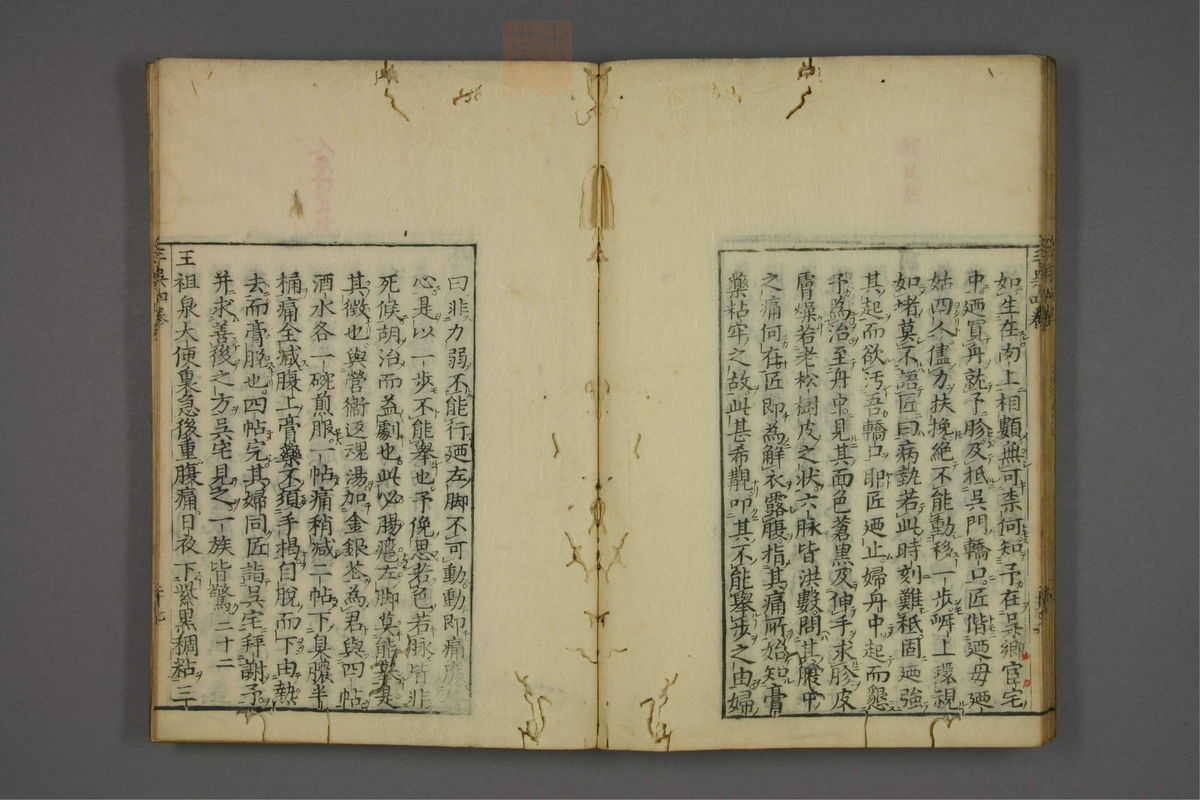 如生在肉上相顧無可柰何知予在吳鄉官宅
中廼買舟就予胗及抵吳門轎口匠偕廼母廼
姑四人儘力扶挽絕不能動移一步岍上環視
如堵莫不語匠曰病埶若此時刻難秪固廼強
其起而欲汚吾轎口耶匠廼止婦舟中起而懇
予為治至舟中見其面色蒼黑及伸手求胗皮
膚燥若老松樹皮之狀六脉皆洪數問其腹中
之痛何在匠即為解衣露腹指其痛所始知膏
藥粘牢之故此甚希覯叩其不能舉步之由婦
曰非力弱不能行廼左脚不可動動即痛應
心是以一步不能舉也予俛思若色若脉皆非
死候胡治而益劇也此必腸癰左脚莫能舉是
其徵也與營衞返魂湯加金銀花為君與四帖
酒水各一碗煎服一帖痛稍減二帖下臭膿半
桶痛全減腹上膏藥不須手揭自脫而下由熱
去而膏脫也四帖完其婦同匠詣吳宅拜謝予
并求善後之方吳宅見之一族皆驚二十二
王祖泉大便裏急後重腹痛日夜下紫黑稠粘三